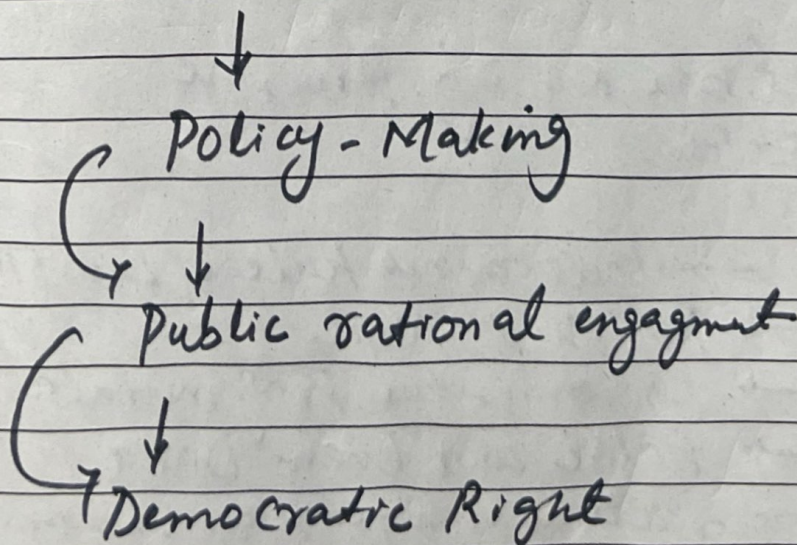 Policy - Making
Public rational engagment
Democratic Right